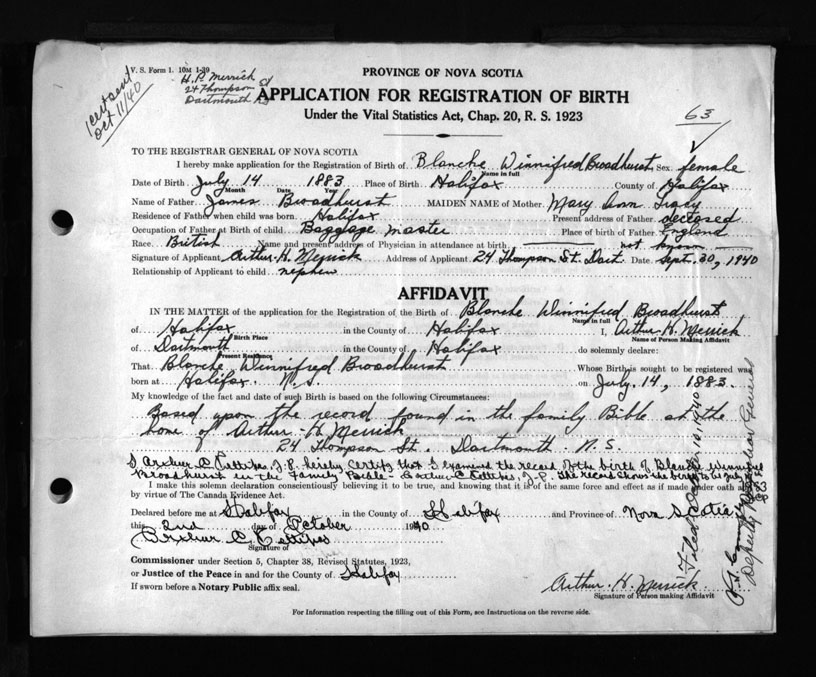 V. S. Form 1. 10M 1-39
H. P. Merrick
24 Thompson St
Dartmouth
1 cert sent
Oct 11/40
PROVINCE OF NOVA SCOTIA
APPLICATION FOR REGISTRATION OF BIRTH
Under the Vital Statistics Act, Chap. 20, R. S. 1923
63
TO THE REGISTRAR GENERAL OF NOVA SCOTIA
I hereby make application for the Registration of Birth of Blanche Winnifred Broadhurst Sex female
Name in full
Date of Birth July 14 1883 Place of Birth Halifax County of Halifax
Month Date Year
Name of Father James Broadhurst MAIDEN NAME of Mother Mary Ann
Residence of Father when child was born Halifax Present address of Father deceased
Occupation of Father at Birth of child Baggage master Place of birth of Father England
Race British Name and present address of Physician in attendance at birth not known
Signature of Applicant Arthur H. Merrick Address of Applicant 24 Thompson St. Dart. Date Sept. 30, 1940
Relationship of Applicant to child nephew
AFFIDAVIT
IN THE MATTER of the application for the Registration of the Birth of Blanche Winnifred Broadhurst
Name in full
of Halifax in the County of Halifax I, Arthur H. Merrick
Birth Place Name of Person Making Affidavit
of Dartmouth in the County of Halifax do solemnly declare:
Present Residence
That Blanche Winnifred Broadhurst Whose Birth is sought to be registered was
born at Halifax. N.S. on July 14, 1883.
My knowledge of the fact and date of such Birth is based on the following Circumstances:
Based upon the record found in the family Bible at the
home of Arthur H Merrick
24 Thompson St. Dartmouth N.S.
I Arthur C Pettipas J.P. hereby certify that I examined the record of the birth of Blanche Winnifred
Broadhurst in the Family Bible - Arthur C Pettipas, J.P. The record shows the birth to be July 14 1883
I make this solemn declaration conscientiously believing it to be true, and knowing that it is of the same force and effect as if made under oath
by virtue of The Canada Evidence Act.
Declared before me at Halifax in the County of Halifax and Province of Nova Scotia
this 2nd day of October 1940
Arthur C. Pettipas
Signature of
Commissioner under Section 5, Chapter 38, Revised Statutes, 1923,
or Justice of the Peace in and for the County of Halifax
If sworn before a Notary Public affix seal.
Arthur H. Merrick
Signature of Person making Affidavit
Filed October 10, 1940
Deputy Registrar General
For Information respecting the filling out of this Form, see Instructions on the reverse side.